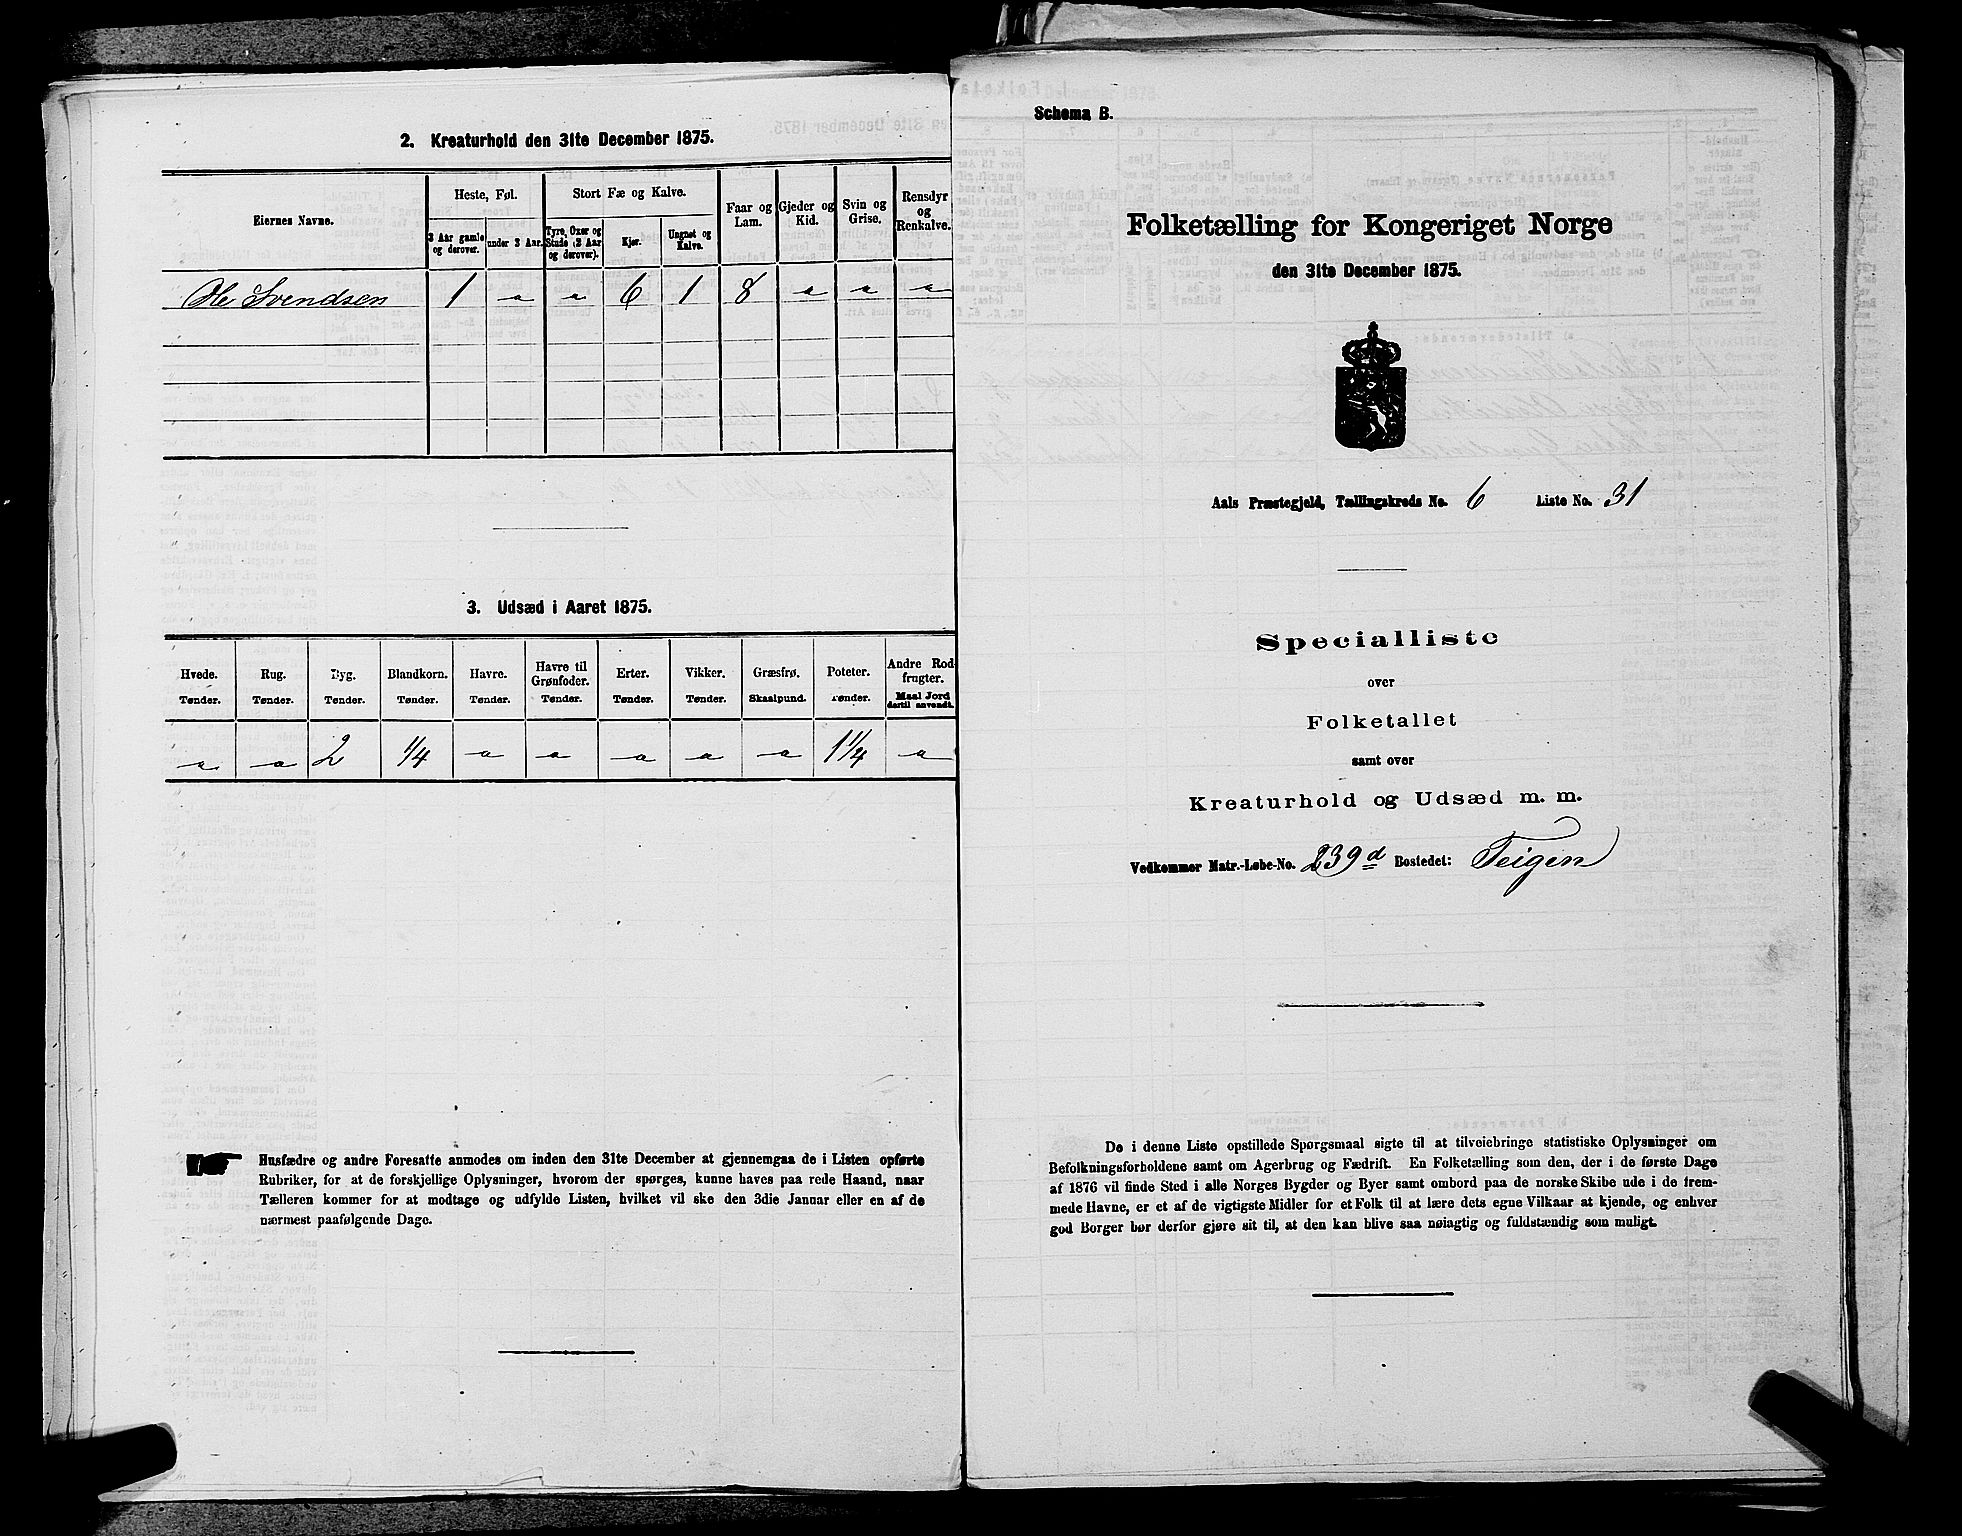 2. Kreaturhold den 31te December 1875.
Eiernes Navne.
Heste, Føl.
Stort Fæ og Kalve.
Faar og Lam.
Gjeder og Kid.
Svin og Grise.
Rensdyr og Renkalve.
3 Aar gamle og derover.
under 3 Aar.
Tyre, Oxer og Stude (2 Aar og derover).
Kjør.
Ungnøt og Kalve.
Ole Svendsen 1 " " 6 1 8 " " "
3. Udsæd i Aaret 1875.
Hvede. Rug. Byg. Blandkorn. Havre. Havre til Grønfoder. Erter. Vikker. Græsfrø. Poteter. Andre Rodfrugter.
Tønder. Tønder. Tønder. Tønder. Tønder. Tønder. Tønder. Tønder. Skaalpund. Tønder. Maal Jord dertil anvendt.
" " 2 1/4 " " " " " 1 1/4 "
Husfædre og andre Foresatte anmodes om inden den 31te December at gjennemgaa de i Listen opførte
Rubriker, for at de forskjellige Oplysninger, hvorom der spørges, kunne haves paa rede Haand, naar
Tælleren kommer for at modtage og udfylde Listen, hvilket vil ske den 3die Januar eller en af de
nærmest paafølgende Dage.
Schema B.
Folketælling for Kongeriget Norge
den 31te December 1875.
Aals Præstegjeld, Tællingskreds No. 6 Liste No. 31
Specialliste
over
Folketallet
samt over
Kreaturhold og Udsæd m. m.
Vedkommer Matr.-Løbe-No. 239d Bostedet: Teigen
De i denne Liste opstillede Spørgsmaal sigte til at tilveiebringe statistiske Oplysninger om
Befolkningsforholdene samt om Agerbrug og Fædrift. En Folketælling som den, der i de første Dage
af 1876 vil finde Sted i alle Norges Bygder og Byer samt ombord paa de norske Skibe ude i de frem-
mede Havne, er et af de vigtigste Midler for et Folk til at lære dets egne Vilkaar at kjende, og enhver
god Borger bør derfor gjøre sit til, at den kan blive saa nøiagtig og fuldstændig som muligt.